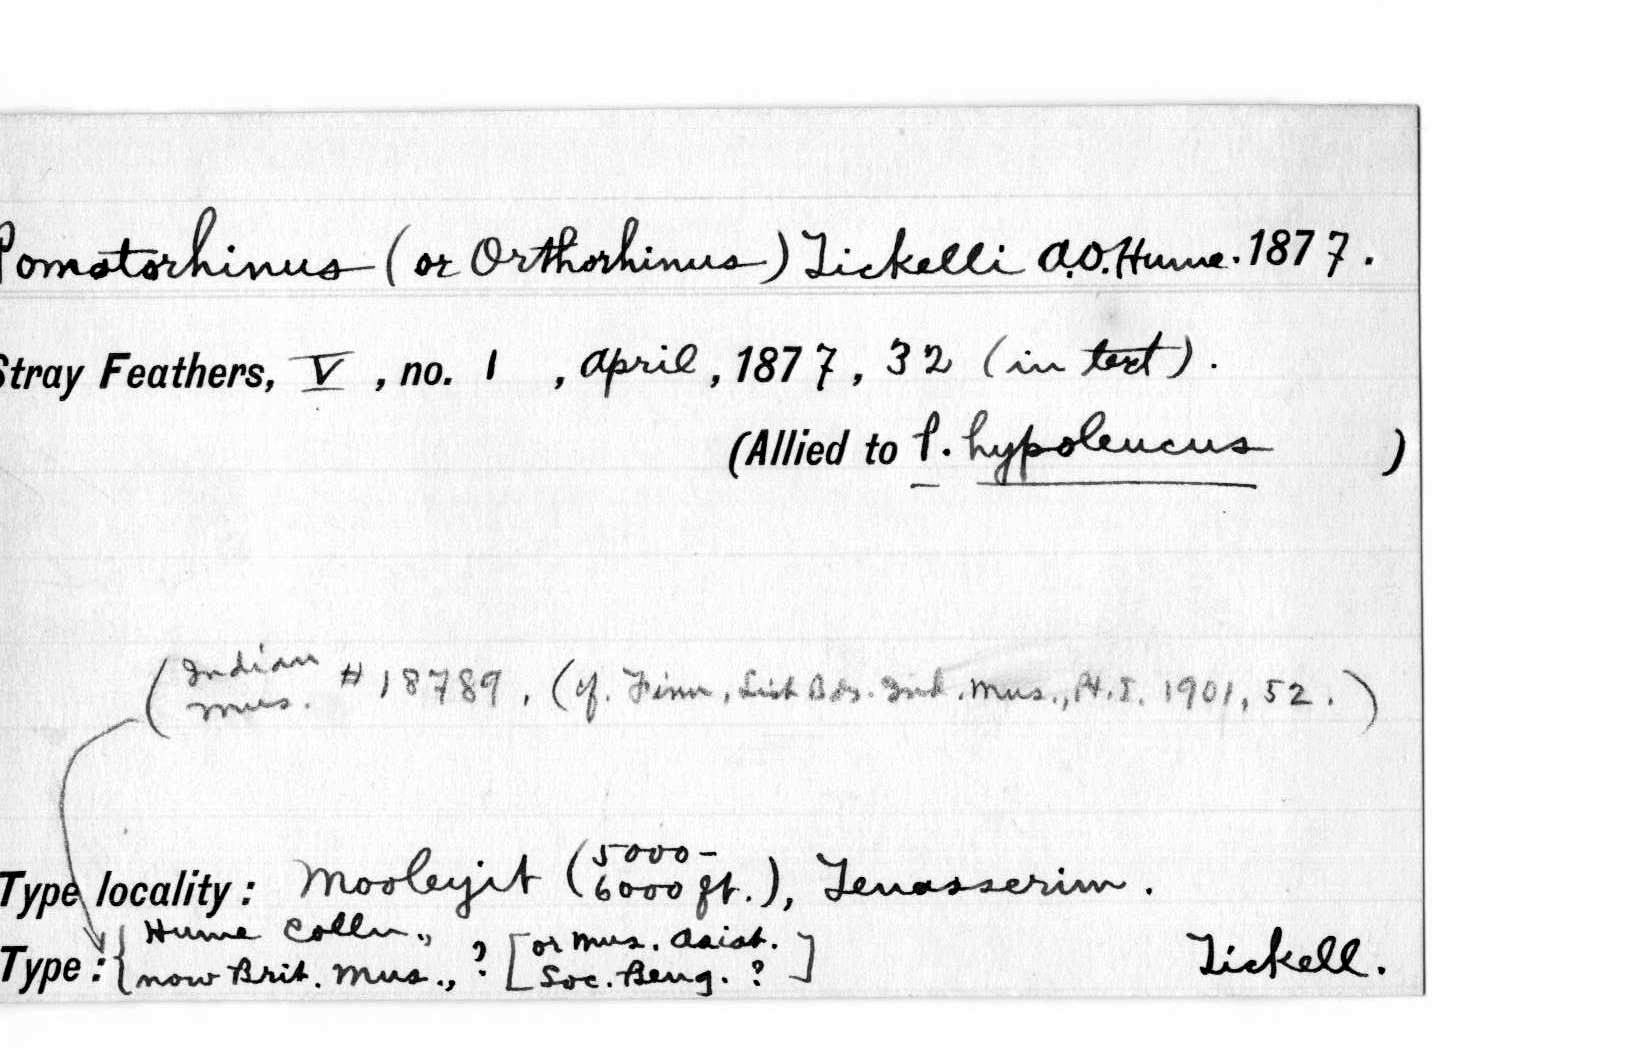 Pomatorhinus (or Orthorhinus) Tickelli A.O. Hume. 1877.
Stray Feathers, V, no. 1, April, 1877, 32 (in text).
(Allied to P. hypoleucus)
(Indian Mus. # 18789, (cf. Finn, List Bds. Ind. Mus., Pt. I. 1901, 52.)
Type locality: Mooleyit (5000-6000 ft.), Tenasserim.
Type: {Hume Colln., now Brit. Mus., ? [or Mus. Asiat. Soc. Beng. ?] Tickell.